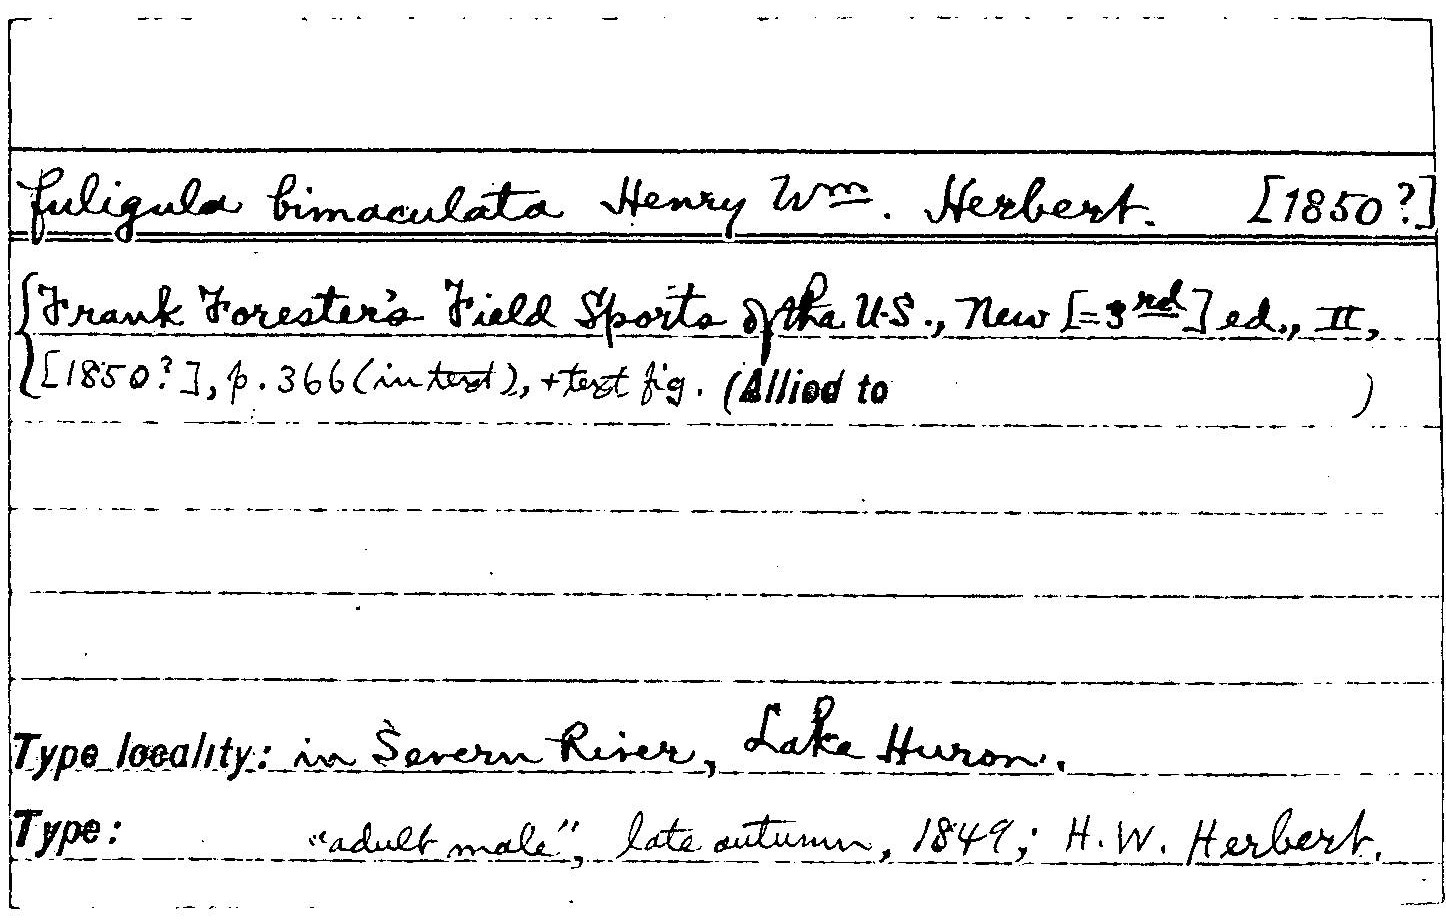 fuligula bimaculata Henry Wm. Herbert. [1850?]
Frank Forester's Field Sports of the U.S., New [=3rd] ed., II,
[1850?], p. 366 (in text), + text fig. (Allied to )
Type locality: in Severn River, Lake Huron.
Type: "adult male", late autumn, 1849; H. W. Herbert.